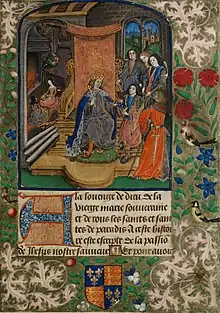 A la louenge de dieu. de sa
vierge marie souueraine
et de tous ses saints et sain
tes de paradis. A ceste histoi
re est escripte de la passio
de Ihesus nostre sauueur